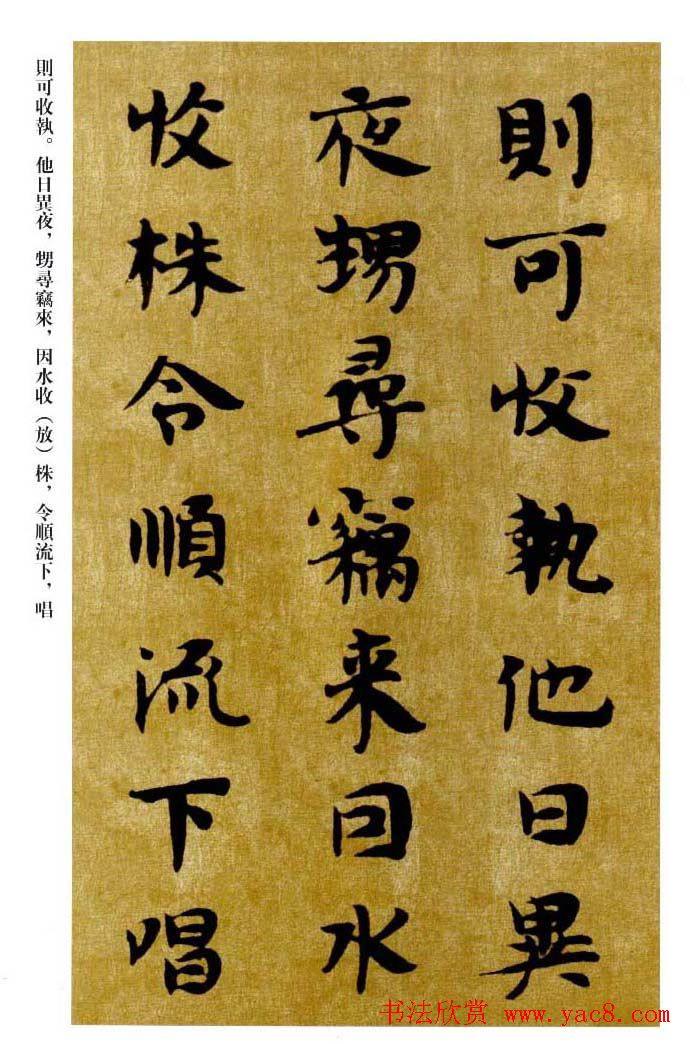 則可收執他日異
夜甥尋竊来因水
收株令順流下唱
則可收執。他日異夜，甥尋竊來，因水收（放）株，令順流下，唱
书法欣赏 www.yac8.com